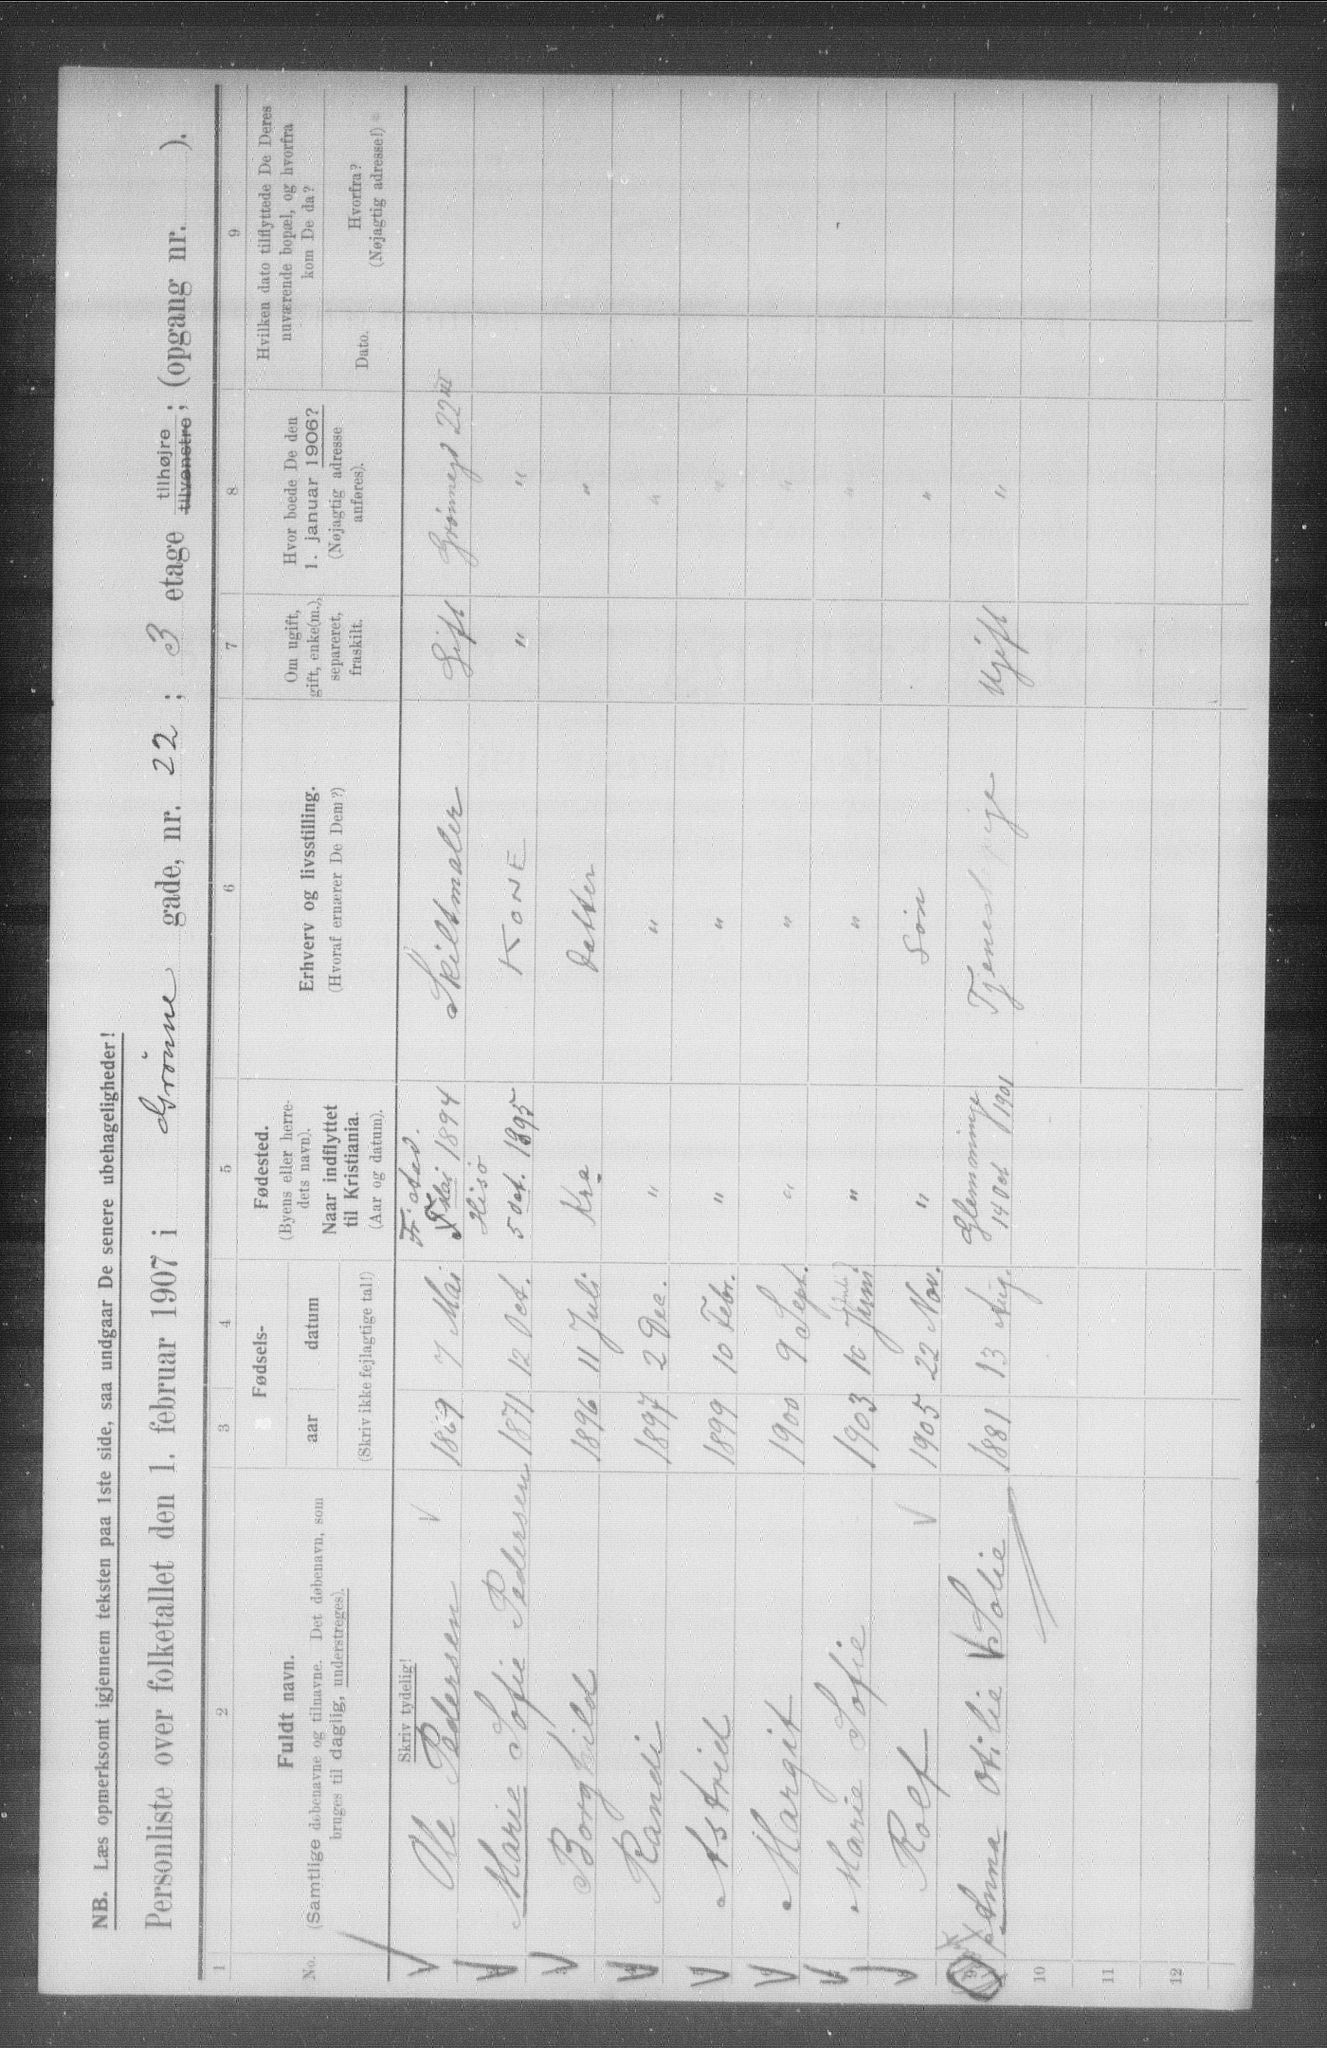 NB. Læs opmerksomt igjennem teksten paa 1ste side, saa undgaar De senere ubehageligheder!
Personliste over folketallet den 1. februar 1907 i Grönne gade, nr. 22 ; 3 etage tilhøjre tilvenstre; (opgang nr. ).
1 2 3 4 5 6 7 8 9
No.
Fuldt navn.
(Samtlige døbenavne og tilnavne. Det døbenavn, som
bruges til daglig, understreges).
Skriv tydelig!
Fødsels-
aar datum
(Skriv ikke fejlagtige tal!)
Fødested.
(Byens eller herre-
dets navn).
Naar indflyttet
til Kristiania.
(Aar og datum).
Erhverv og livsstilling.
(Hvoraf ernærer De Dem?)
Om ugift,
gift, enke(m.),
separeret,
fraskilt.
Hvor boede De den
1. januar 1906?
(Nøjagtig adresse
anføres).
Hvilken dato tilflyttede De Deres
nuværende bopæl, og hvorfra
kom De da?
Dato.
Hvorfra?
(Nøjagtig adresse!)
Ole Pedersen 1869 7 Mai Fr.stad. Mai 1894 Skiltmaler Gift Grönnegd 22 III
Marie Sofie Pedersen 1871 12 Oct. Hisö 5 Oct. 1895 KONE " "
Borghild 1896 11 Juli Kra Datter "
Randi 1897 2 Dec. " " "
Astrid 1899 10 Febr. " " "
Margit 1900 9 Sept. " " "
Marie Sofie 1903 10 Juni (Juli) " " "
Rolf 1905 22 Nov. " Sön "
9 Anna Otilie Solie 1881 13 Aug. Glemminge 14 Oct 1901 Tjenestpige Ugift "
10
11
12